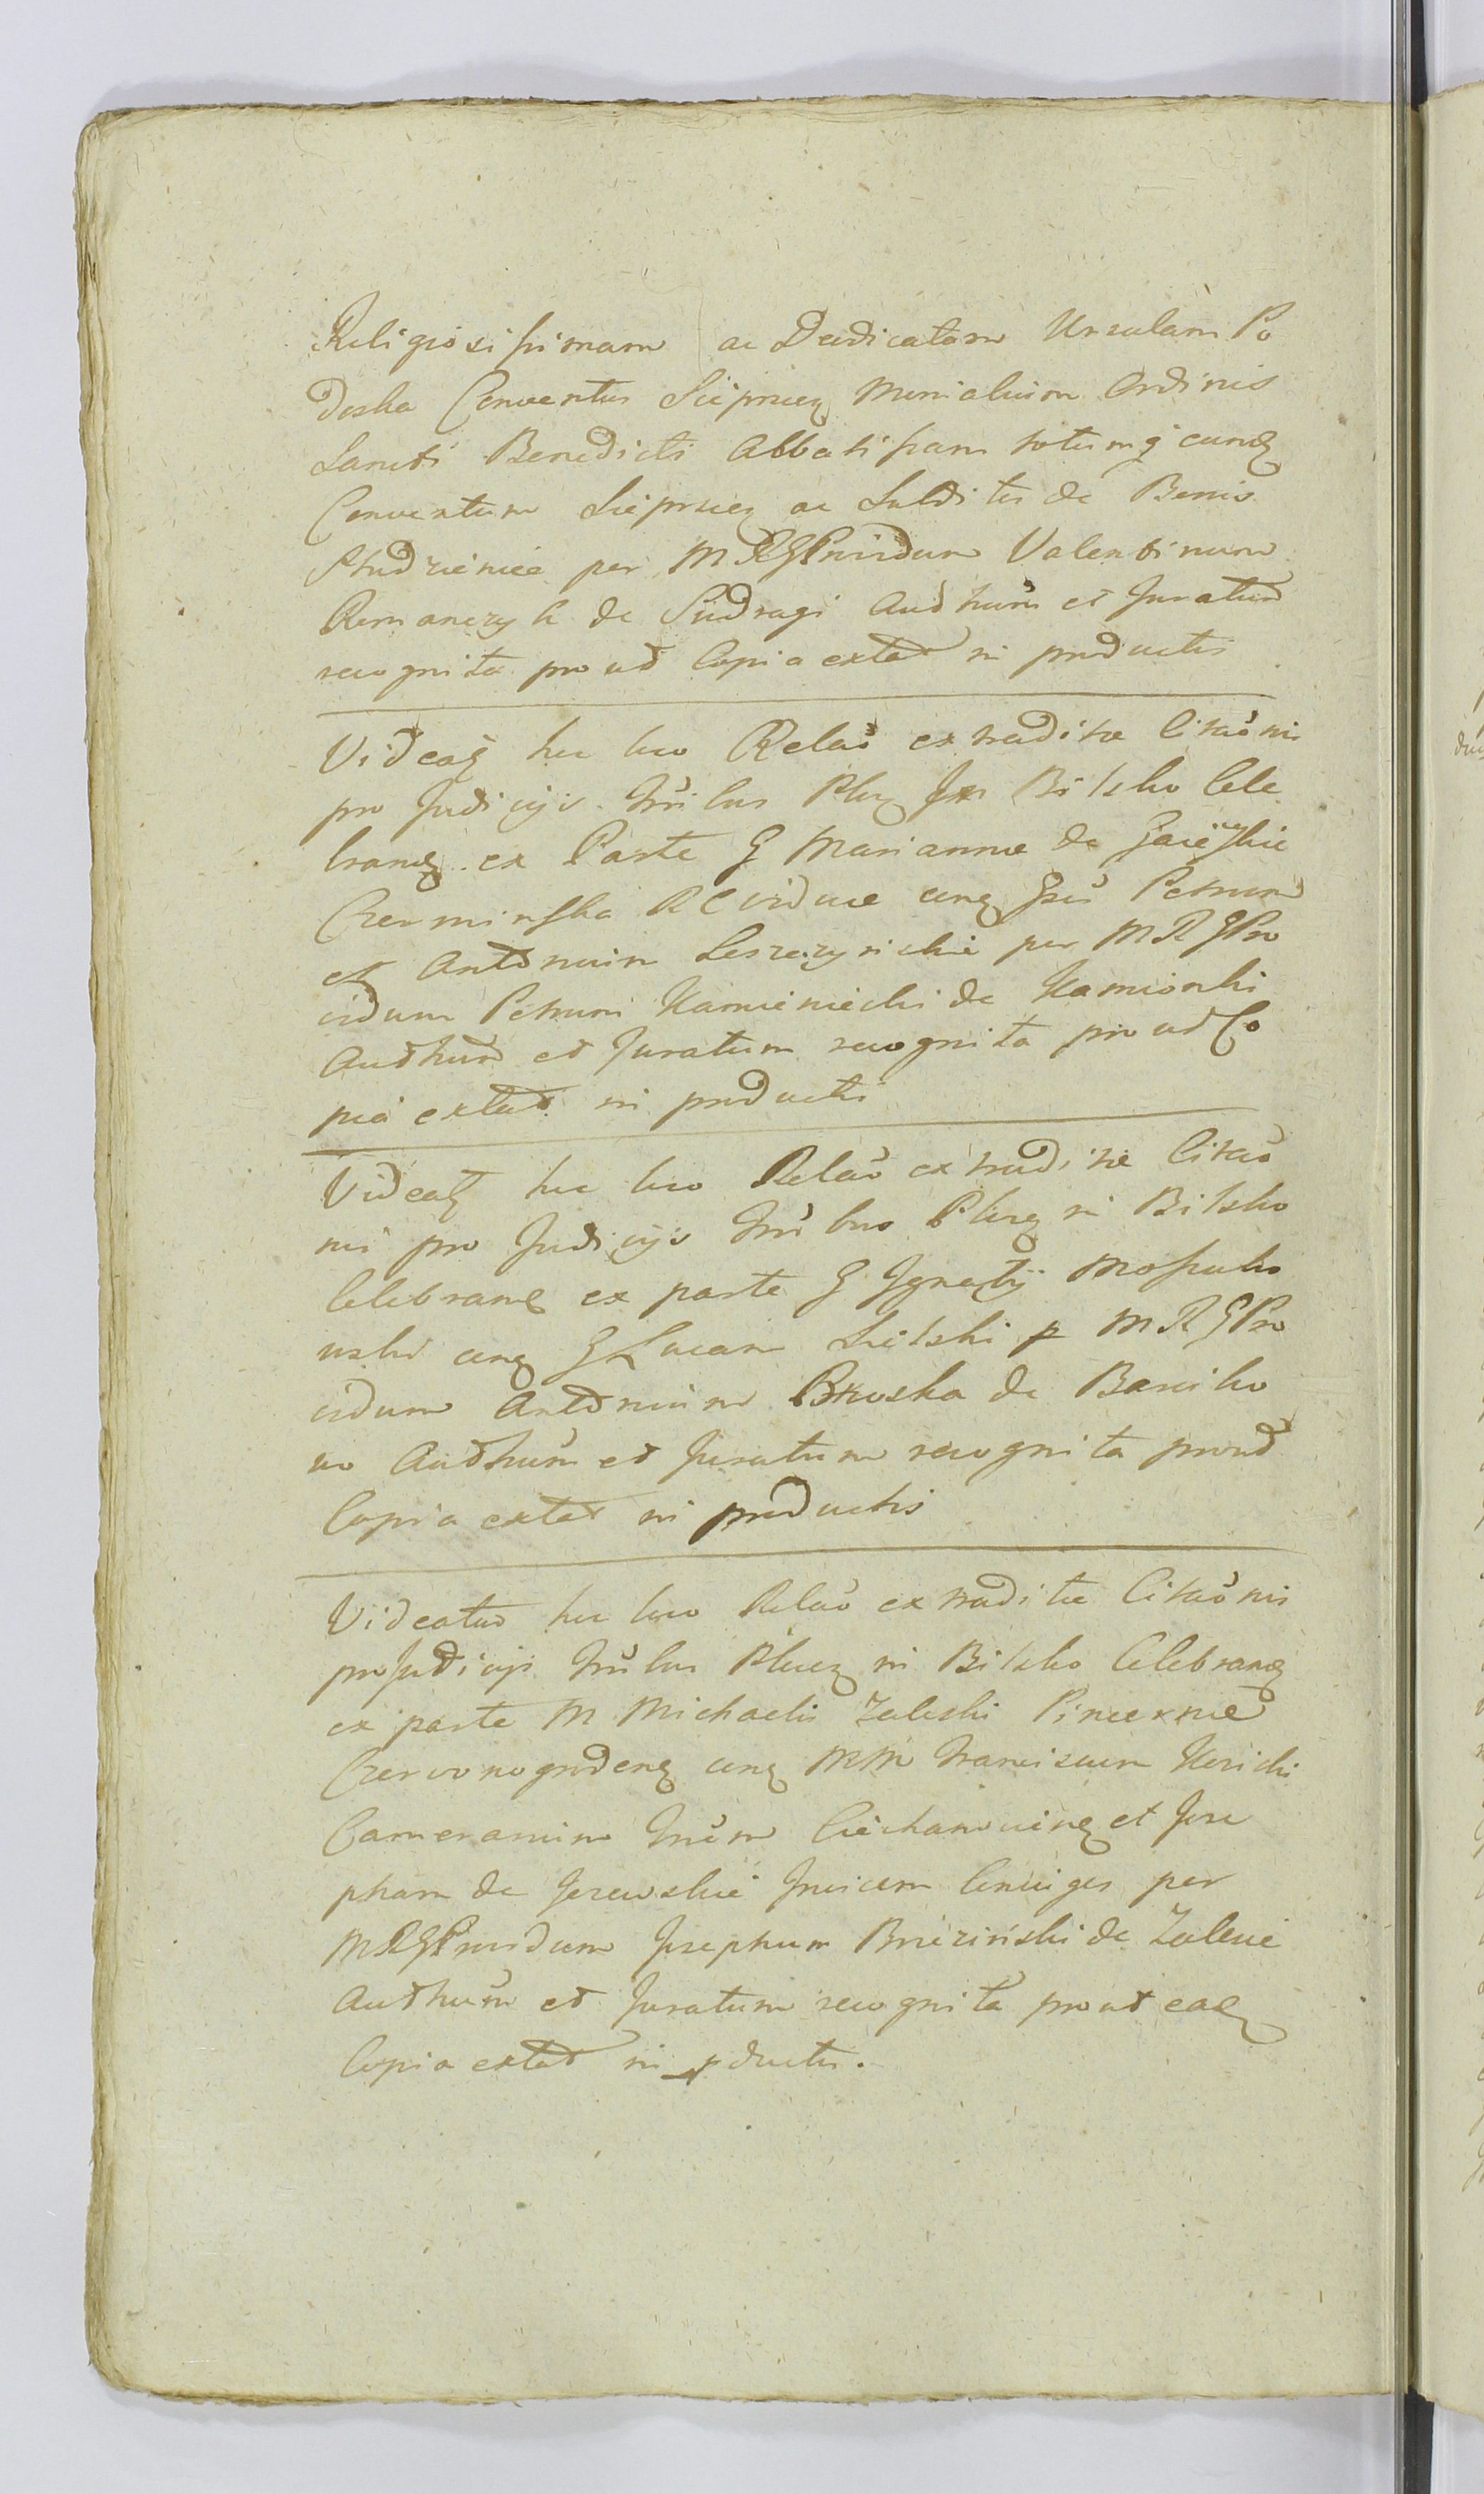 Religiosissimam ac Dedicatam Ursulam Po
doska Conventus Sieprcen Monialium Ordinis
Sancti Benedicti Abbatissam totumq eund
Conventum Sieprcen ac Subditis de Bonis
Studzienice per MRGProvidum Valentinum
Romanczyk de Sudragi Authum et Juratum
recognita prout Copia extat in productis
Videat hic loco Relaõ extraditæ Citaõnis
pro Judicijs Trilbus Plocen in Bilsko Cele
brand ex Parte G Marianna de
Czerminska RC viduæ cong Gsos Petrum
et Antonium Leszczynskie per MRGPro
vidum Petrum Kamieniecki de Kamionki
Authum et Juratum recognita prout Co
pia extat in productis
Videat hic loco Relaõ extraditæ Citaõ
nis pro Judicijs Trilbus Plocen in Bilsko
Celebrand ex parte G Ignatij Mossako
wski cong G Lucam p MRGPro
vidum Antonium Brzoska de Barciko
wo Authum et Juratum recognita prout
Copia extat in productis
Videatur hic loco Relaõ extraditæ Citaõnis
pro Judicijs Trilbus Plocen in Bilsko Celebrand
ex parte M Michaelis Zaleski Pincernæ
Czerwonogroden cong MM Franciscum
Camerarium Trrem Ciechanovien et Jose
pham de Jezewskie Invicem Conjuges per
MRGProvidum Josephum Brzezinski de Zalesie
Authum et Juratum recognita prout ead
Copia extat in pductis.